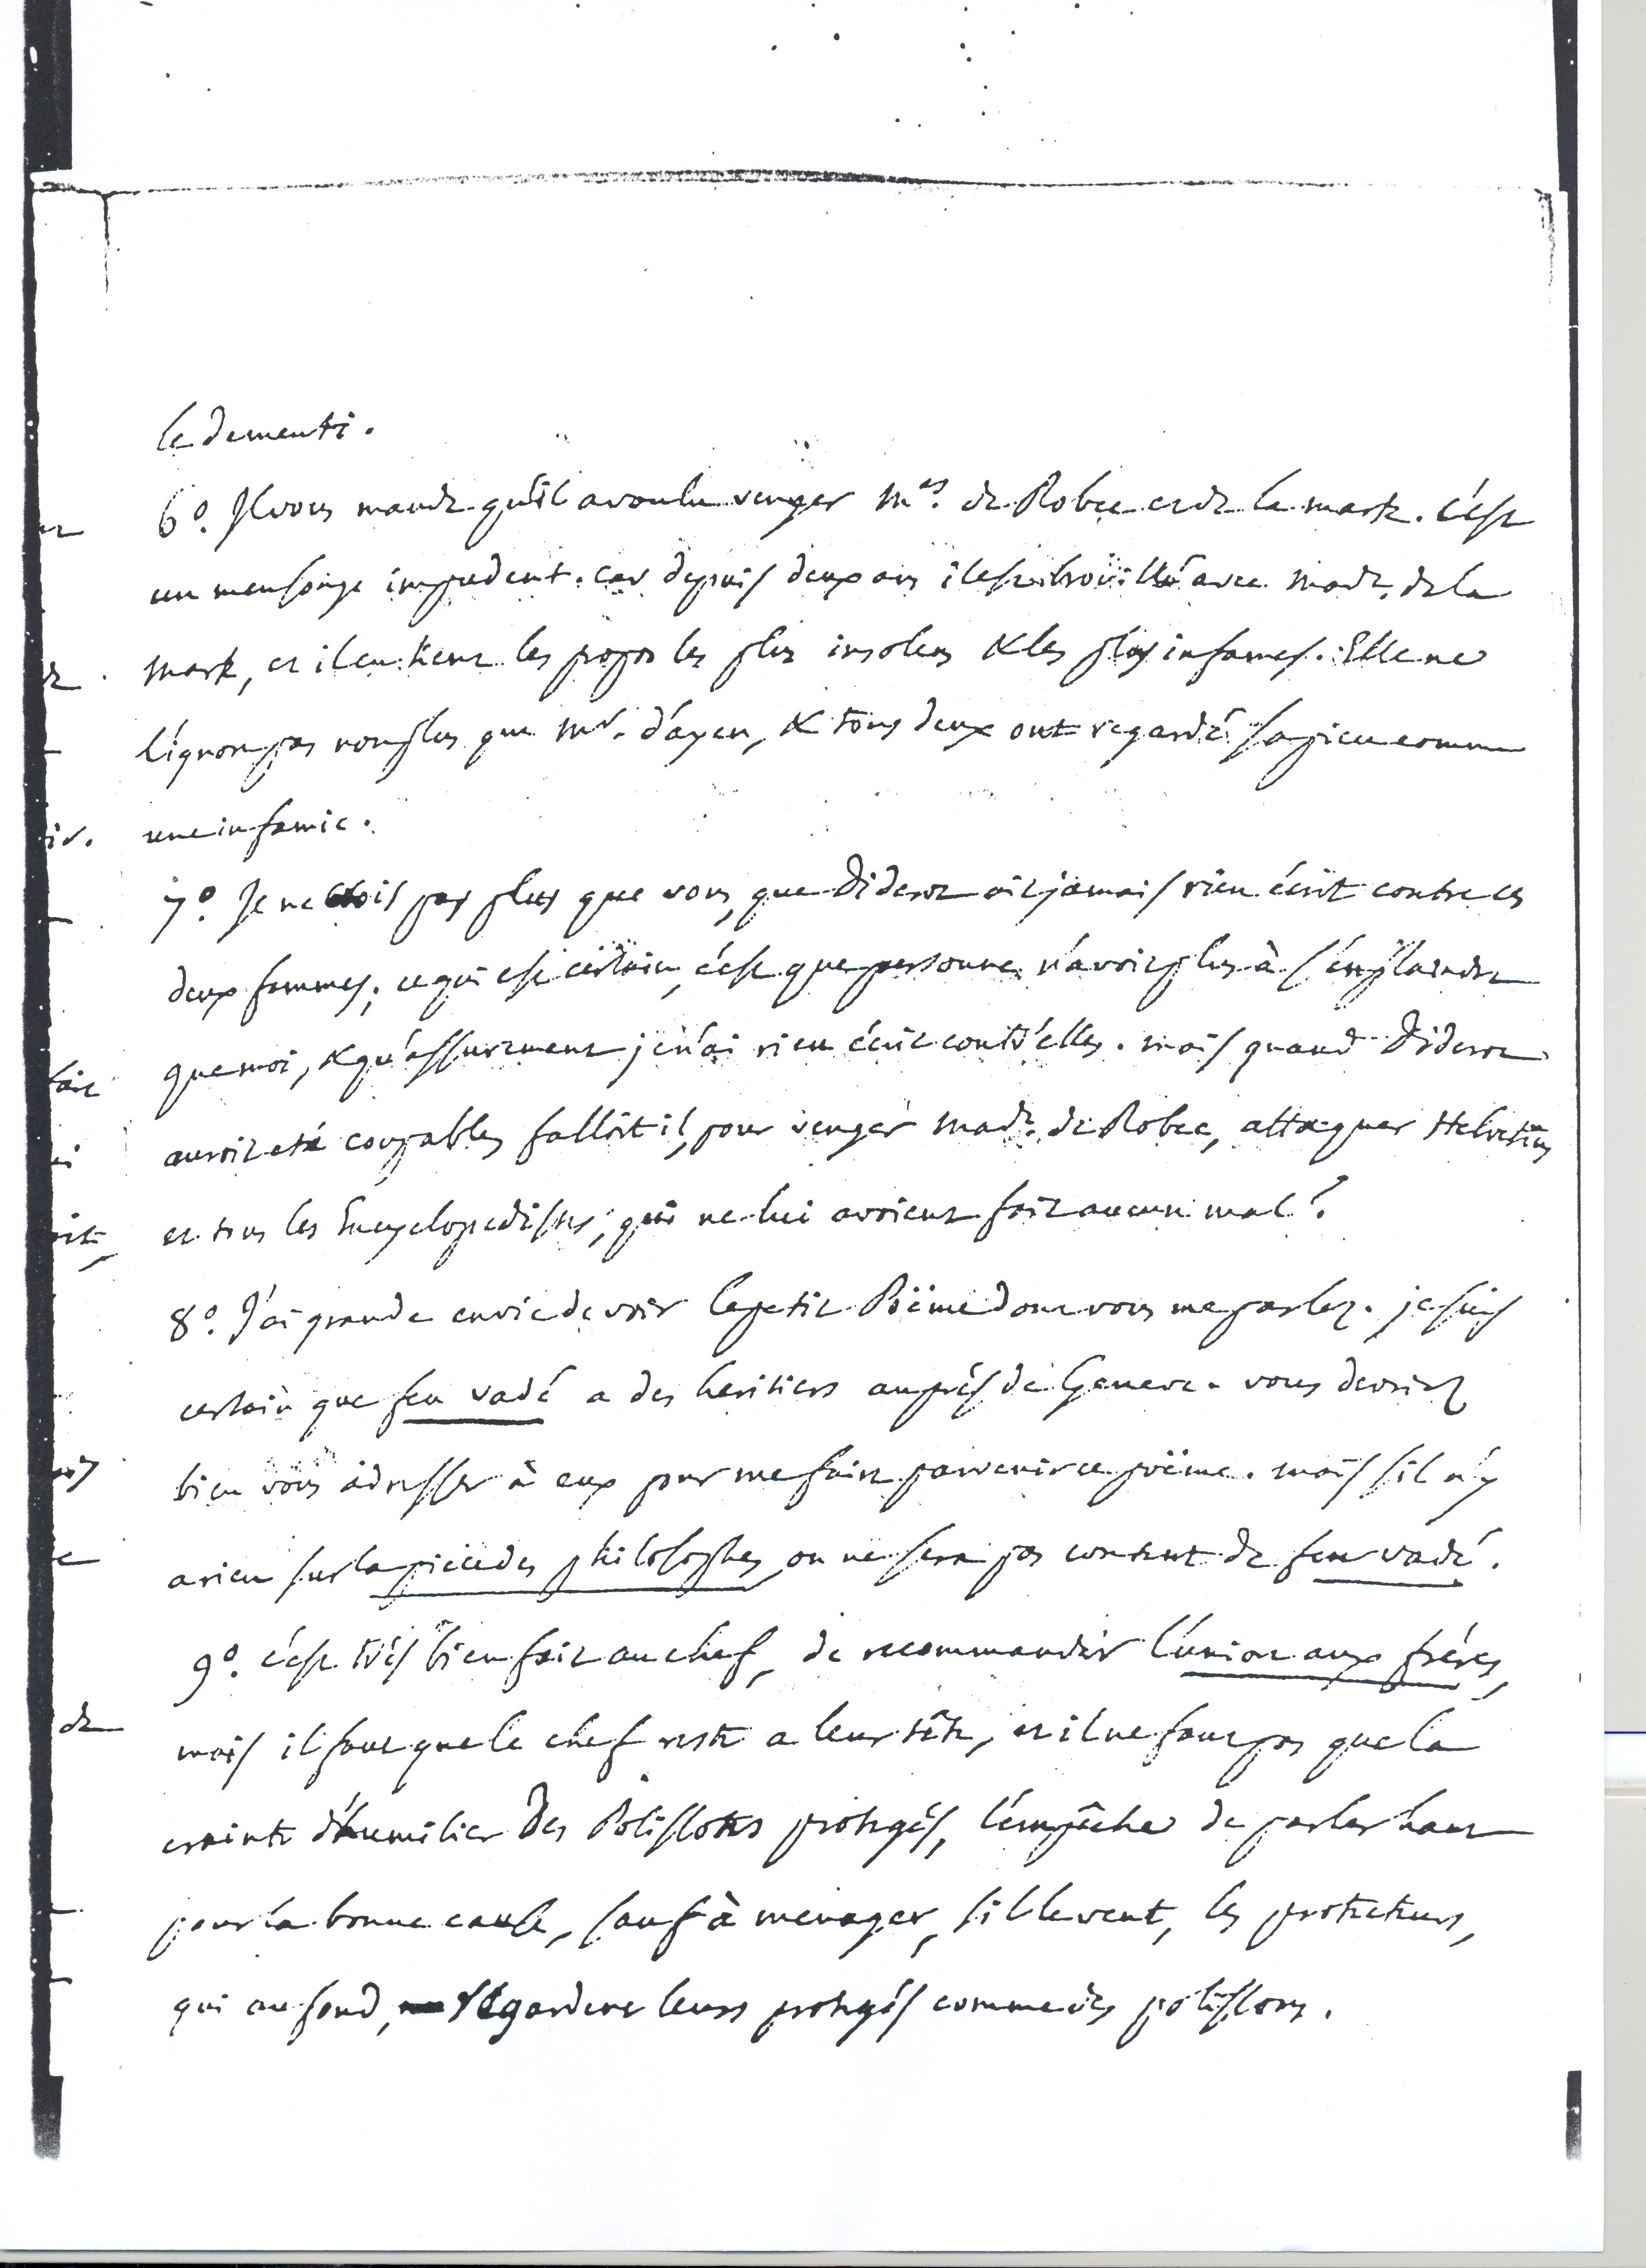 le dementi.
6°. Il vous mande qu'il a voulu venger Mes. de Robec et de la mark. c'est
un mensonge impudent. car depuis deux ans il est broüillé avec Made. de la
mark, et il en tient les propos les plus insolens & les plus infames. Elle ne
l'ignore pas non plus que Mr. d'ayen, & tous deux ont regardé sa piece comme
une infamie.
7°. Je ne crois pas plus que vous, que Diderot ait jamais rien écrit contre ces
deux femmes; ce qui est certain, c'est que personne n'avoit plus à s'en plaindre
que moi, & qu'assurement je n'ai rien écrit contr'elles. mais quand Diderot
auroit eté coupable, falloit il, pour venger Made. de Robec, attaquer Helvetius
et tous les Encyclopedistes, qui ne lui avoient fait aucun mal?
8°. J'ai grande envie de voir le petit Poëme dont vous me parlez. je suis
certain que feu vadé a des heritiers auprès de Geneve. vous devriez
bien vous adresser à eux pour me faire parvenir ce poëme. mais s'il n'y
a rien sur la piéce des philosophes, on ne sera pas content de feu vadé.
9°. c'est très bien fait au chef, de recommander l'union aux fréres,
mais il faut que le chef reste a leur tête, et il ne faut pas que la
crainte d'humilier Des Polissons protegés, l'empêche de parler haut
pour la bonne cause, sauf à menager, s'il le veut, les protecteurs,
qui au fond, regardent leurs protegés comme des polissons.